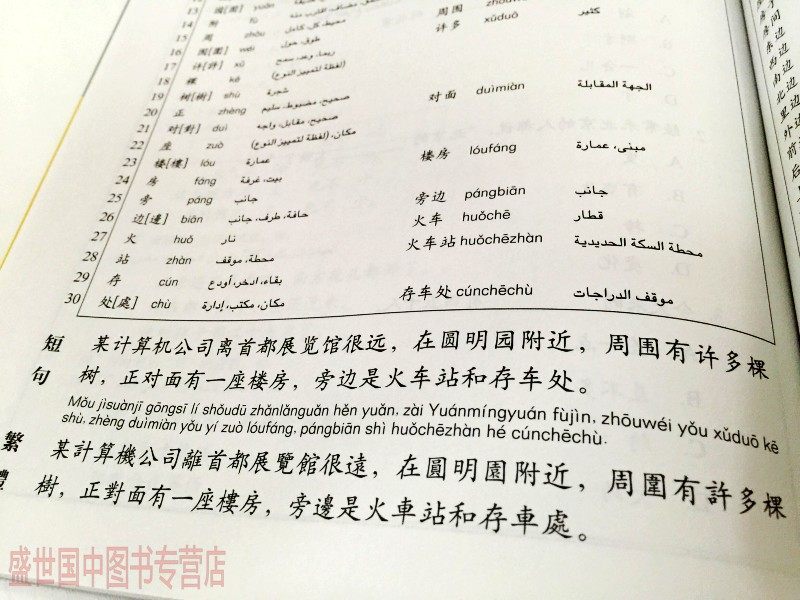 周围
14 附 fù
15 周 zhōu محيط، كل، كامل 许多 xǔduō كثير
16 围[圍] wéi طوق، حول
17 许[許] xǔ ربما، وعد، سمح
18 棵 kē (لفظة لتمييز النوع)
19 树[樹] shù شجرة
20 正 zhèng صحيح، مضبوط، سليم 对面 duìmiàn الجهة المقابلة
21 对[對] duì صحيح، مقابل، واجه
22 座 zuò مكان، (لفظة لتمييز النوع)
23 楼[樓] lóu عمارة 楼房 lóufáng مبنى، عمارة
24 房 fáng بيت، غرفة
25 旁 páng جانب 旁边 pángbiān جانب
26 边[邊] biān حافة، طرف، جانب 火车 huǒchē قطار
27 火 huǒ نار 火车站 huǒchēzhàn محطة السكة الحديدية
28 站 zhàn محطة، موقف
29 存 cún بقاء، ادخر، أودع 存车处 cúnchēchù موقف الدراجات
30 处[處] chù مكان، مكتب، إدارة
短 某计算机公司离首都展览馆很远，在圆明园附近，周围有许多棵
句 树，正对面有一座楼房，旁边是火车站和存车处。
Mǒu jìsuànjī gōngsī lí shǒudū zhǎnlǎnguǎn hěn yuǎn, zài Yuánmíngyuán fùjìn, zhōuwéi yǒu xǔduō kē
shù, zhèng duìmiàn yǒu yí zuò lóufáng, pángbiān shì huǒchēzhàn hé cúnchēchù.
繁 某計算機公司離首都展覽館很遠，在圓明園附近，周圍有許多棵
體 樹，正對面有一座樓房，旁邊是火車站和存車處。
房间
东边
西边
南边
北边
里边
外边
盛世国中图书专营店